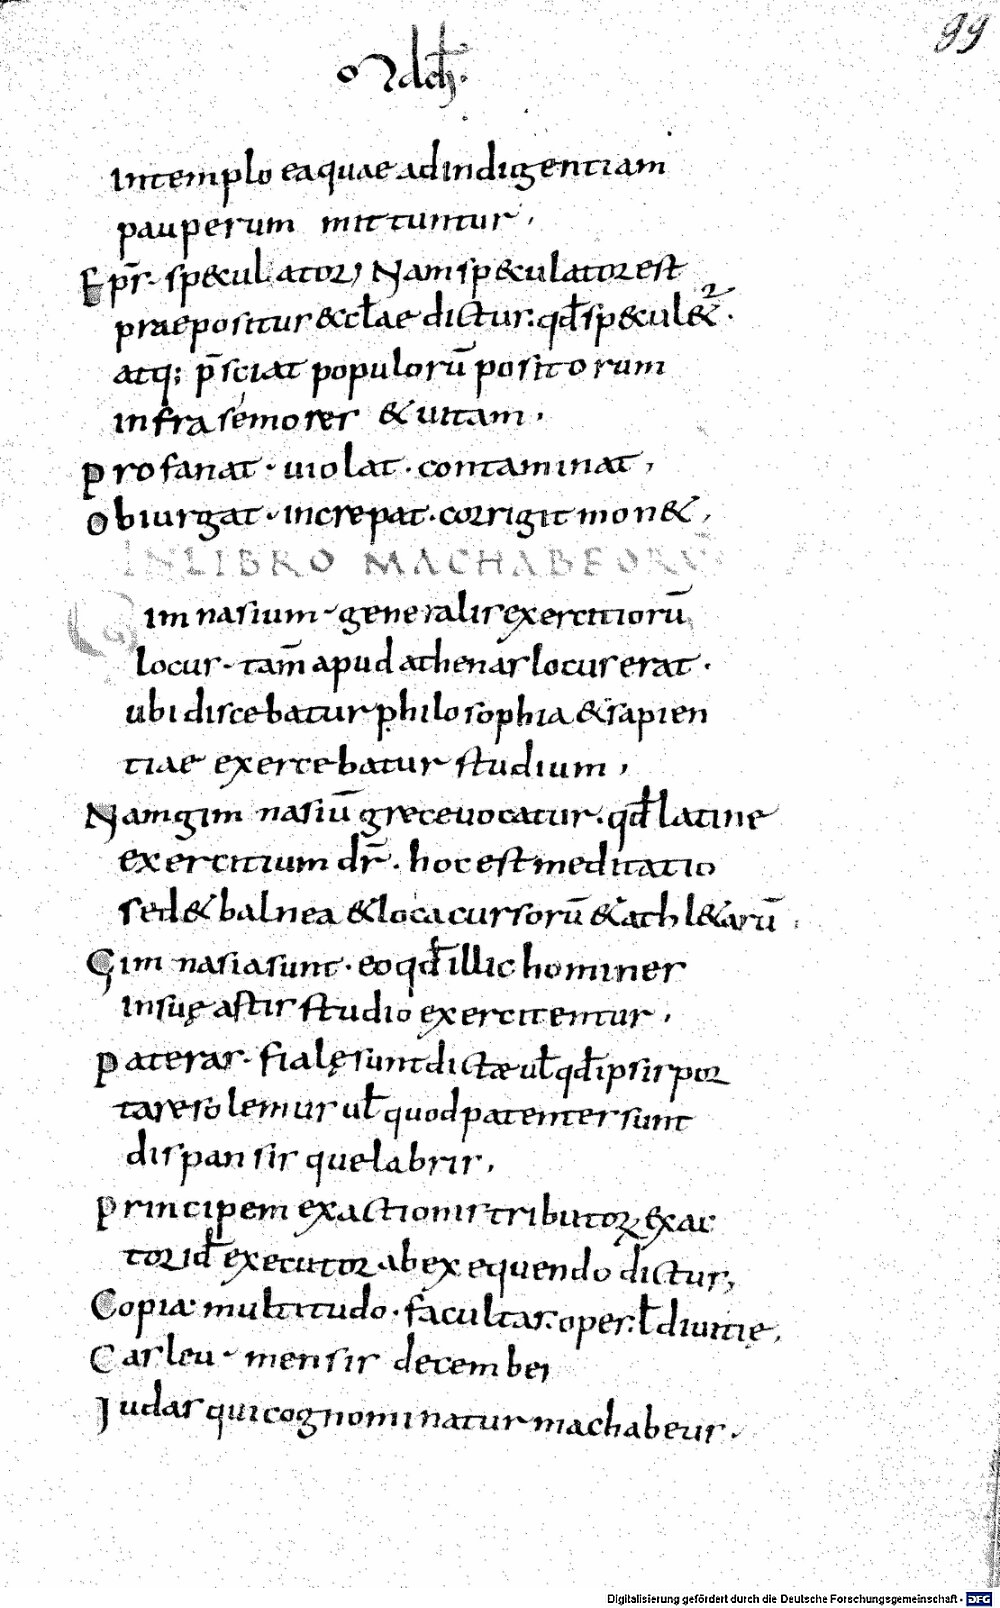 99
Intemplo eaquae adindigentiam
pauperum mittuntur,
Epr̄s· sp&culator, Nam sp&culator est
praepositur &ccl̄ae dictur. qd̄ sp&cul&ur·
atq; p̄sciat populorū positorum
infra se mores & uitam·
Profanat· uiolat· contaminat,
Obiurgat· increpat· corrigit mon&,
IN LIBRO MACHABEORŪ
Gimnasium· generalis exercitiorū
locus· tam̄ apud athenas locus erat·
ubi discebatur philosophia & sapien
tiae exercebatur studium,
Nam gimnasiū grece uocatur· qd̄ latine
exercitium dr̄· hoc est meditatio
sed & balnea & loca cursorū & athl&arū
Gimnasia sunt· eo qd̄ illic homines
in suę astis studio exercitentur,
Pateras· fialę sunt dictæ ul̄ qd̄ ipsis por
tare solemus ul̄ quod patenter sunt
dispansis que labris,
Principem exactionis tributor exac
tor id̄ executor ab exequendo dictur,
Copia· multitudo· facultas· opes· l̄ diuitię,
Casleu· mensis decembei
Iudas qui cognominatur machabeus·
Digitalisierung gefördert durch die Deutsche Forschungsgemeinschaft - DFG